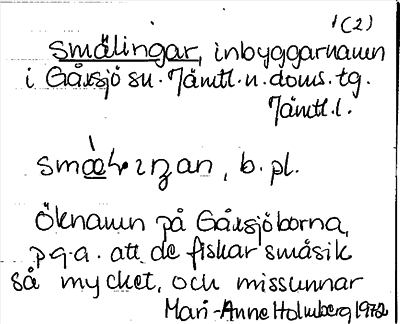 1(2)
Smålingar, inbyggarnamn
i Gåxsjö sn. Jämtl. n. doms. tg.
Jämtl. l.
b. pl.
Öknamn på Gåxsjöborna,
p.g.a. att de fiskar småsik
så mycket, och missunnar
Mari-Anne Holmberg 1972